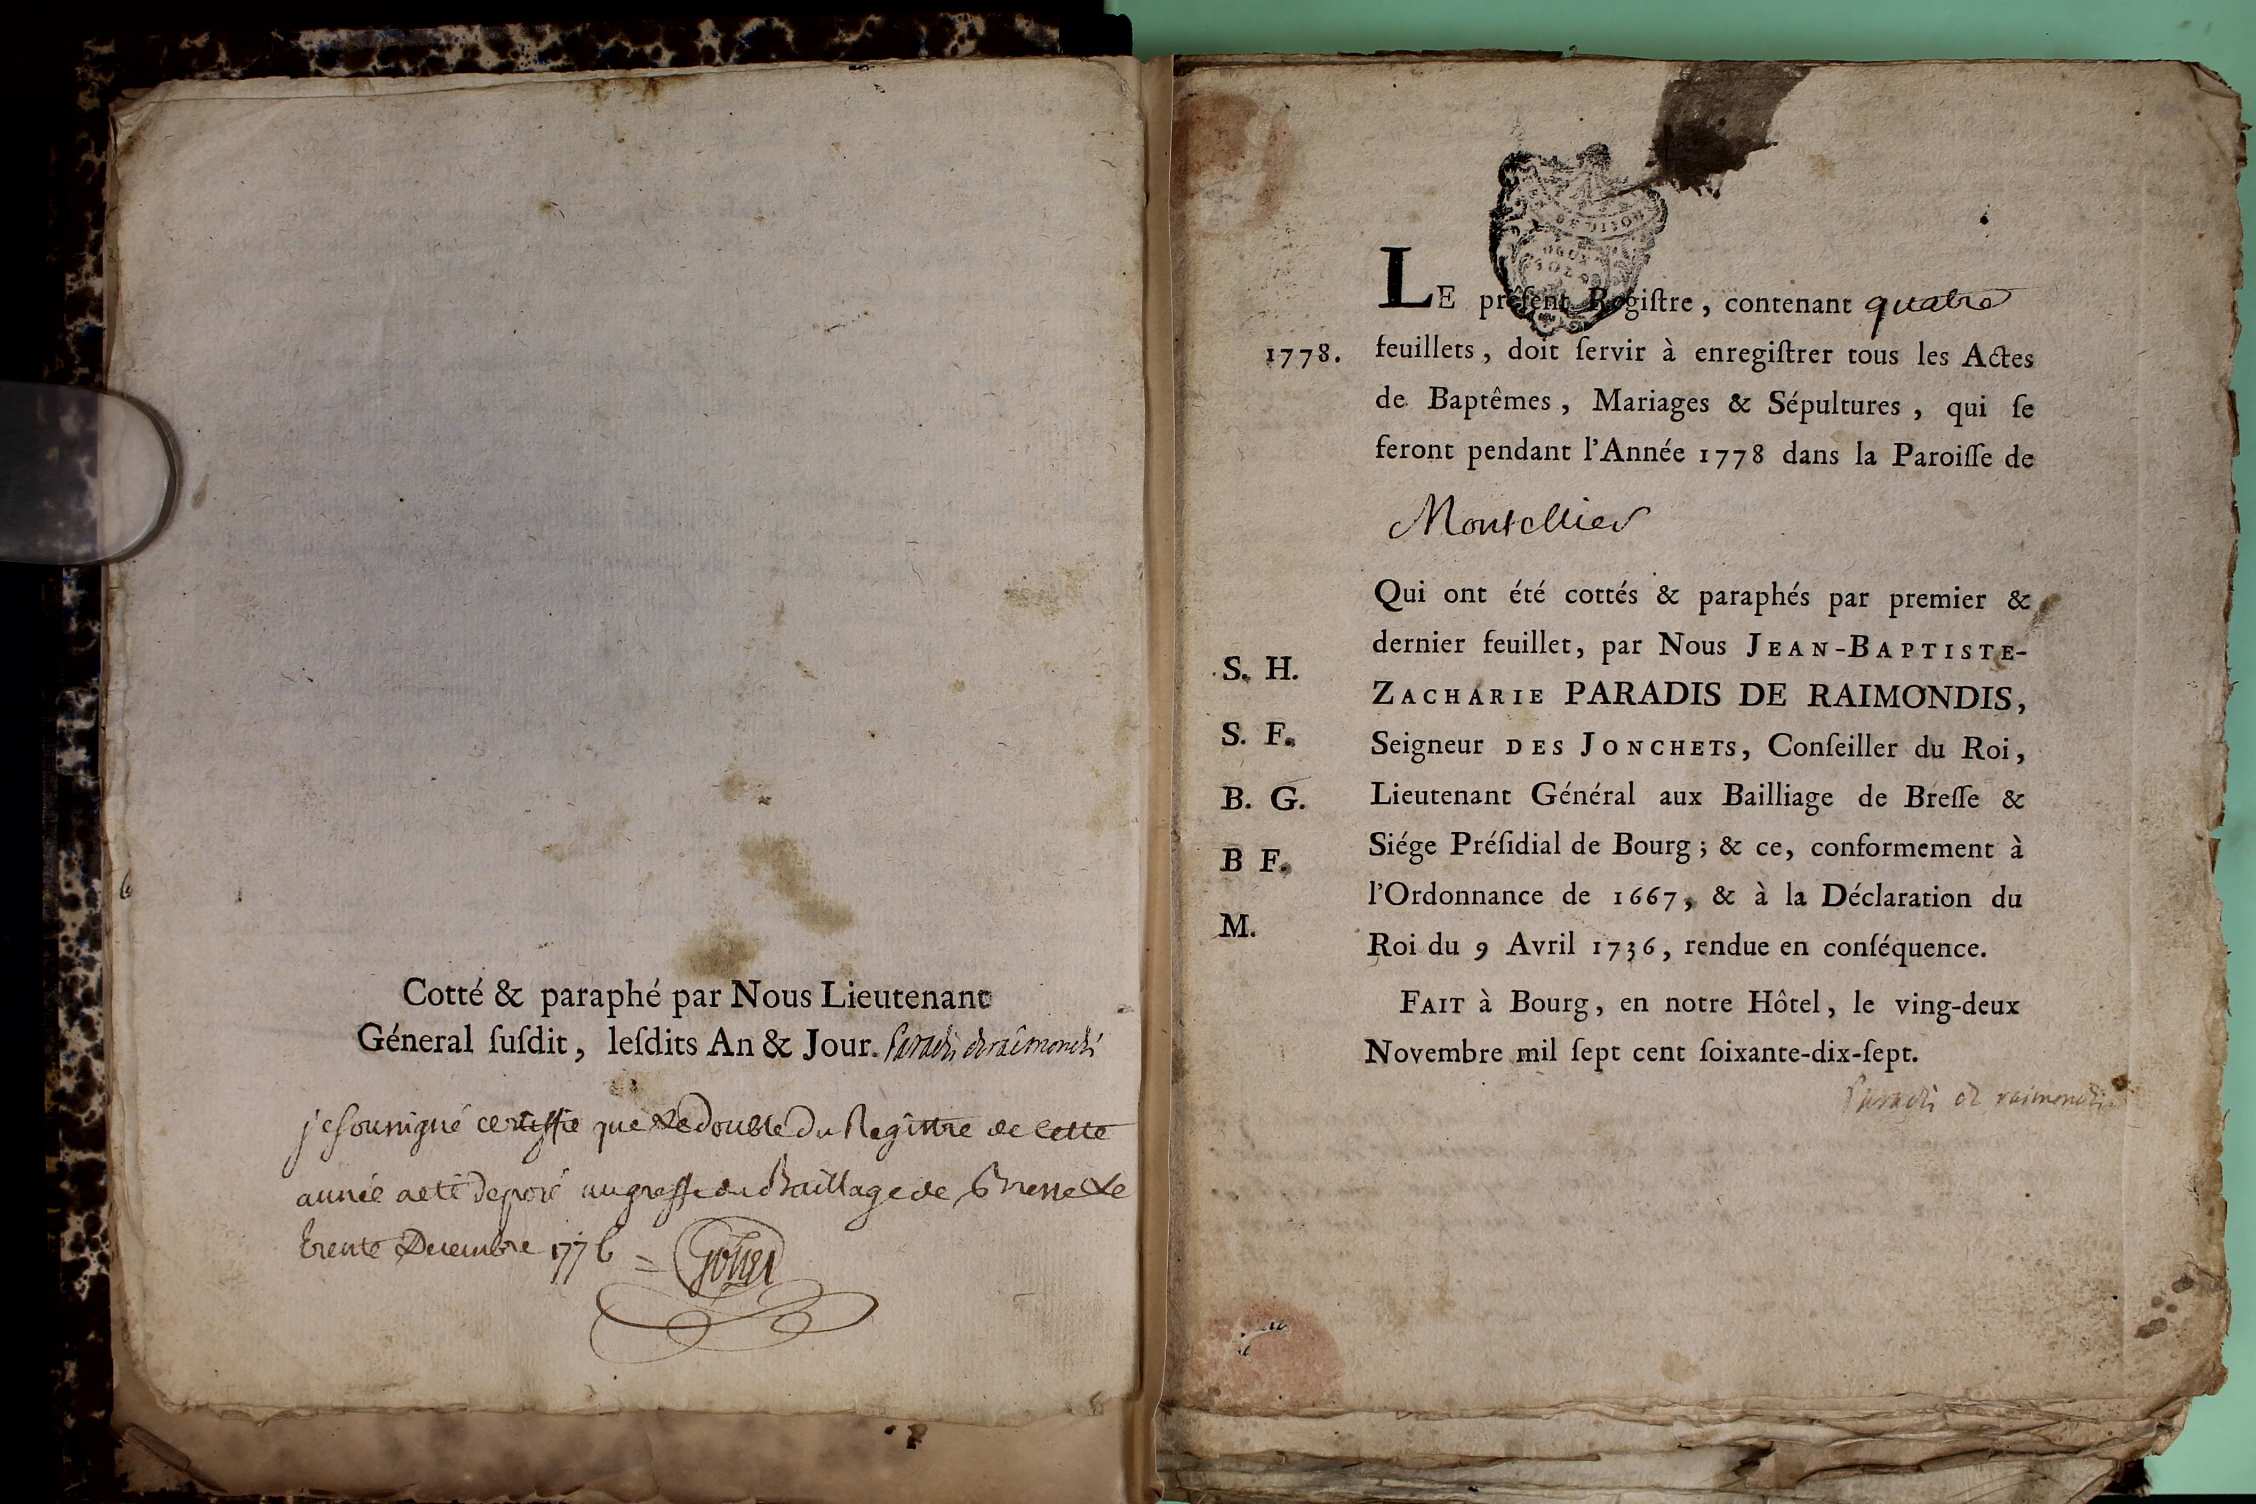 Cotté & paraphé par Nous Lieutenant
Géneral ſuſdit, leſdits An & Jour. Paradis de raimondis
je soussigné certiffie que le double du Registre de cette
année a eté deposé au greffe du Baillage de Bresse le
trente Decembre 1776
LE préſent Regiſtre, contenant quatre
1778.
feuillets, doit ſervir à enregiſtrer tous les Actes
de Baptêmes, Mariages & Sépultures, qui ſe
feront pendant l'Année 1778 dans la Paroiſſe de
Montellier
Qui ont été cottés & paraphés par premier &
dernier feuillet, par Nous JEAN-BAPTISTE-
S. H.
ZACHARIE PARADIS DE RAIMONDIS,
S. F.
Seigneur DES JONCHETS, Conſeiller du Roi,
B. G.
Lieutenant Général aux Bailliage de Breſſe &
Siége Préſidial de Bourg; & ce, conformement à
B F.
l'Ordonnance de 1667, & à la Déclaration du
M.
Roi du 9 Avril 1736, rendue en conſéquence.
FAIT à Bourg, en notre Hôtel, le ving-deux
Novembre mil ſept cent ſoixante-dix-ſept.
Paradis de raimondis